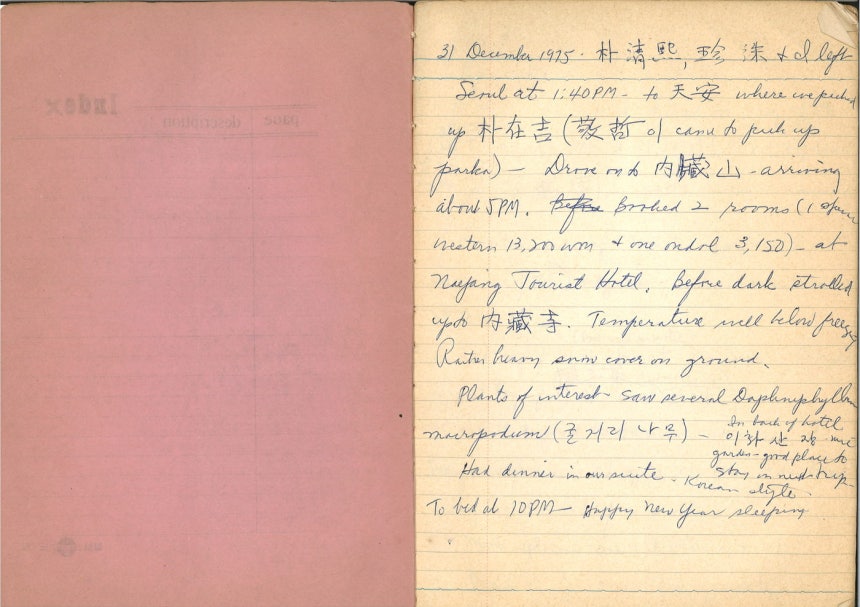 Index
page description
31 December 1975. 朴清熙, 珍洙 & I left
Seoul at 1:40 PM - to 天安 where we picked
up 朴在吉 (敬哲이 came to pick up
parka) - Drove on to 內臟山 - arriving
about 5PM. Before Booked 2 rooms (1
western 13,200 won & one ondol 3,150) - at
Naejang Tourist Hotel. Before dark strolled
up to 內藏寺. Temperature well below freezing
Rather heavy snow cover on ground.
Plants of interest - saw several Daphniphyllum
macropodum (굴거리 나무) -
In back of hotel
이화산장 nice
garden - good place to
stay on next trip
Korean style.
Had dinner in our suite.
To bed at 10PM - Happy New Year sleeping